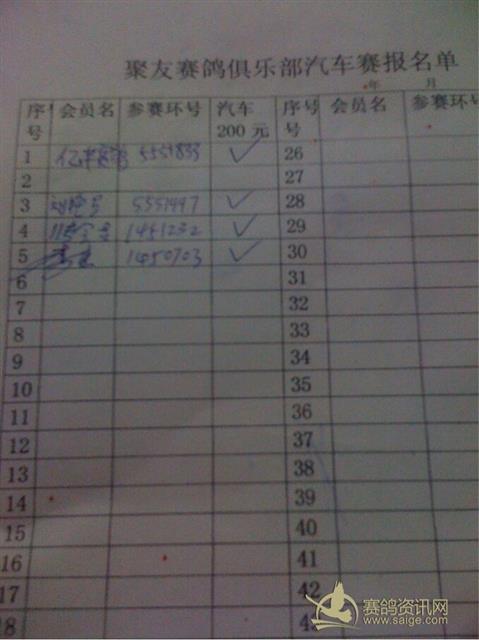 聚友赛鸽俱乐部汽车赛报名单
年 月
序号 会员名 参赛环号 汽车200元 序号 会员名 参赛环号
1 5551833 ✓ 26
2 27
3 5551497 ✓ 28
4 1451232 ✓ 29
5 1450703 ✓ 30
6 31
7 32
8 33
9 34
10 35
11 36
12 37
13 38
14 39
15 40
16 41
17 42
赛鸽资讯网
www.saige.com